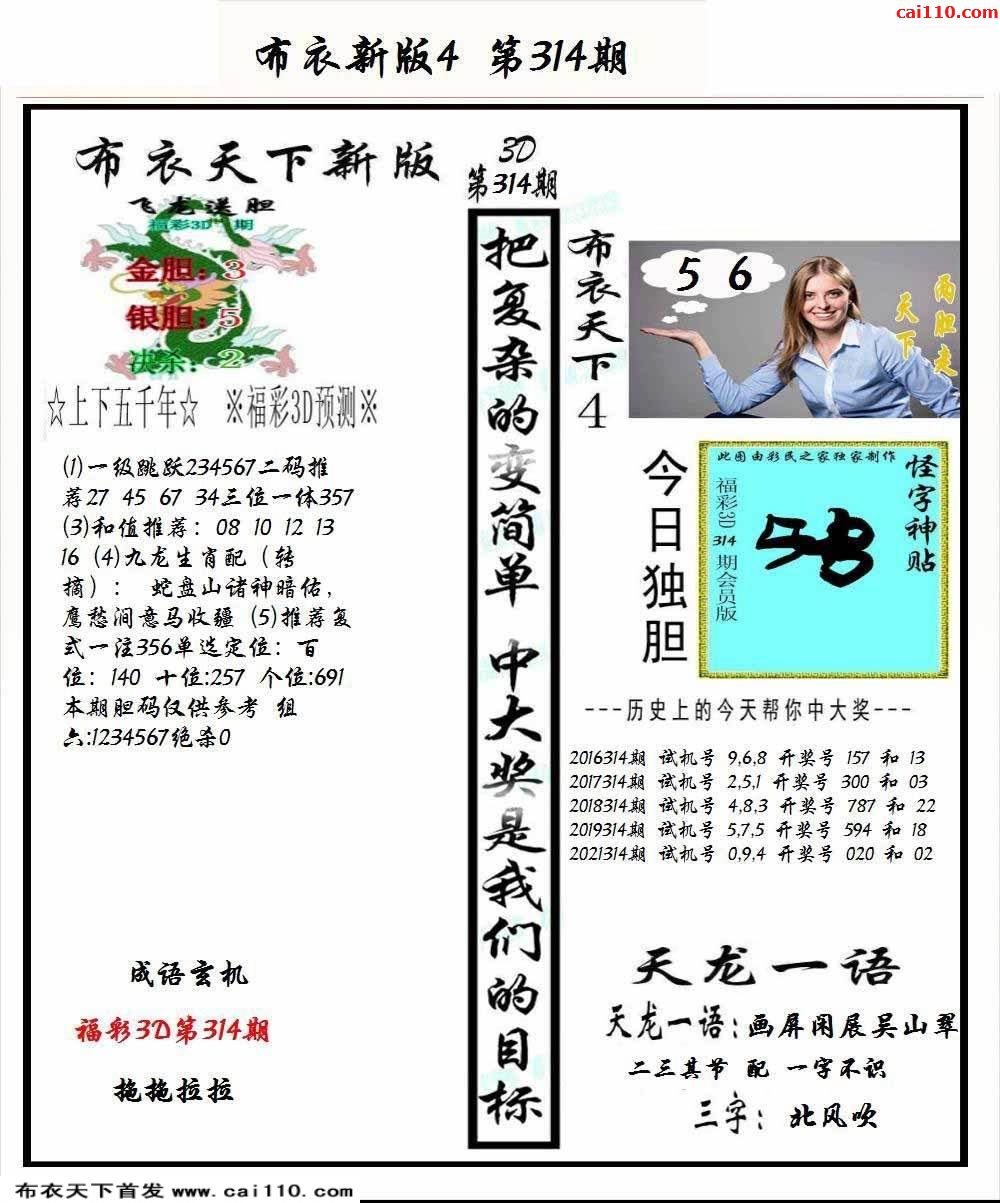 cai110.com
布衣新版4 第314期
布衣天下新版
飞龙送胆
福彩3D 期
金胆：3
银胆：5
决杀：2
☆上下五千年☆ ※福彩3D预测※
(1)一级跳跃234567二码推
荐27 45 67 34三位一体357
(3)和值推荐：08 10 12 13
16 (4)九龙生肖配（转
摘）： 蛇盘山诸神暗佑，
鹰愁涧意马收疆 (5)推荐复
式一注356单选定位：百
位：140 十位:257 个位:691
本期胆码仅供参考 组
六:1234567绝杀0
成语玄机
福彩3D第314期
拖拖拉拉
3D
第314期
把复杂的变简单 中大奖是我们的目标
布衣天下4
5 6
两胆走
天下
今日独胆
此图由彩民之家独家制作
怪字神贴
福彩3D 314 期会员版
---历史上的今天帮你中大奖---
2016314期 试机号 9,6,8 开奖号 157 和 13
2017314期 试机号 2,5,1 开奖号 300 和 03
2018314期 试机号 4,8,3 开奖号 787 和 22
2019314期 试机号 5,7,5 开奖号 594 和 18
2021314期 试机号 0,9,4 开奖号 020 和 02
天龙一语
天龙一语:画屏闲展吴山翠
二三其节 配 一字不识
三字： 北风吹
布衣天下首发 www.cai110.com